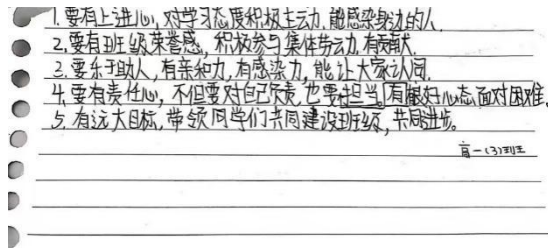 1.要有上进心,对学习态度积极主动,能感染身边的人.
2.要有班级荣誉感,积极参与集体劳动,有贡献.
3.要乐于助人,有亲和力,有感染力,能让大家认同.
4.要有责任心,不但要对自己负责,也要担当,有很好心态面对困难.
5.有远大目标,带领同学们共同建设班级,共同进步。
高一(3)班